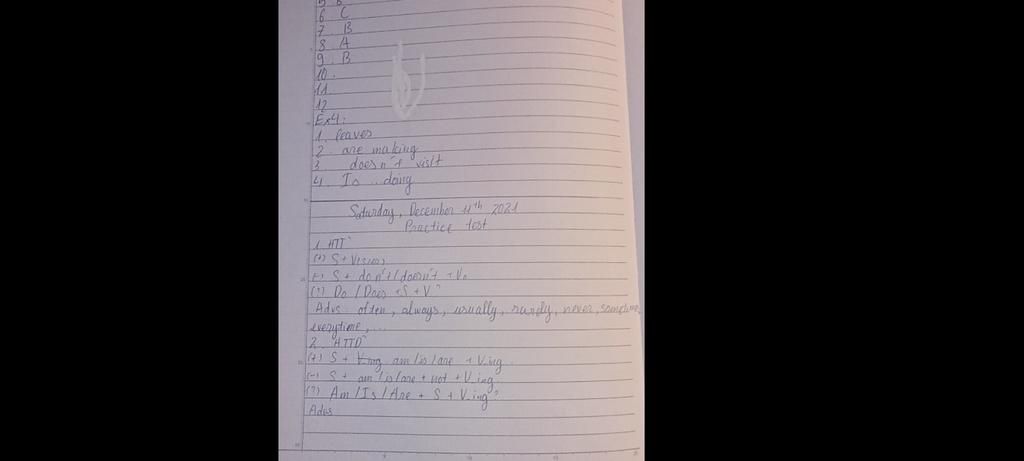 5 B
6. C
7. B
8. A
9. B
10.
11
12
Ex4:
1. leaves
2. are making
3. doesn't visit
4. Is ... doing
Saturday, December 11th 2021
Practice test
1. HTĐ
(+) S + Vs/es
(-) S + don't/doesn't + Vo
(?) Do / Does + S + V?
Advs: often, always, usually, rarely, never, sometime,
everytime, ...
2. HTTD
(+) S + am/is/are + V-ing
(-) S + am/is/are + not + V-ing
(?) Am/Is/Are + S + V-ing?
Advs